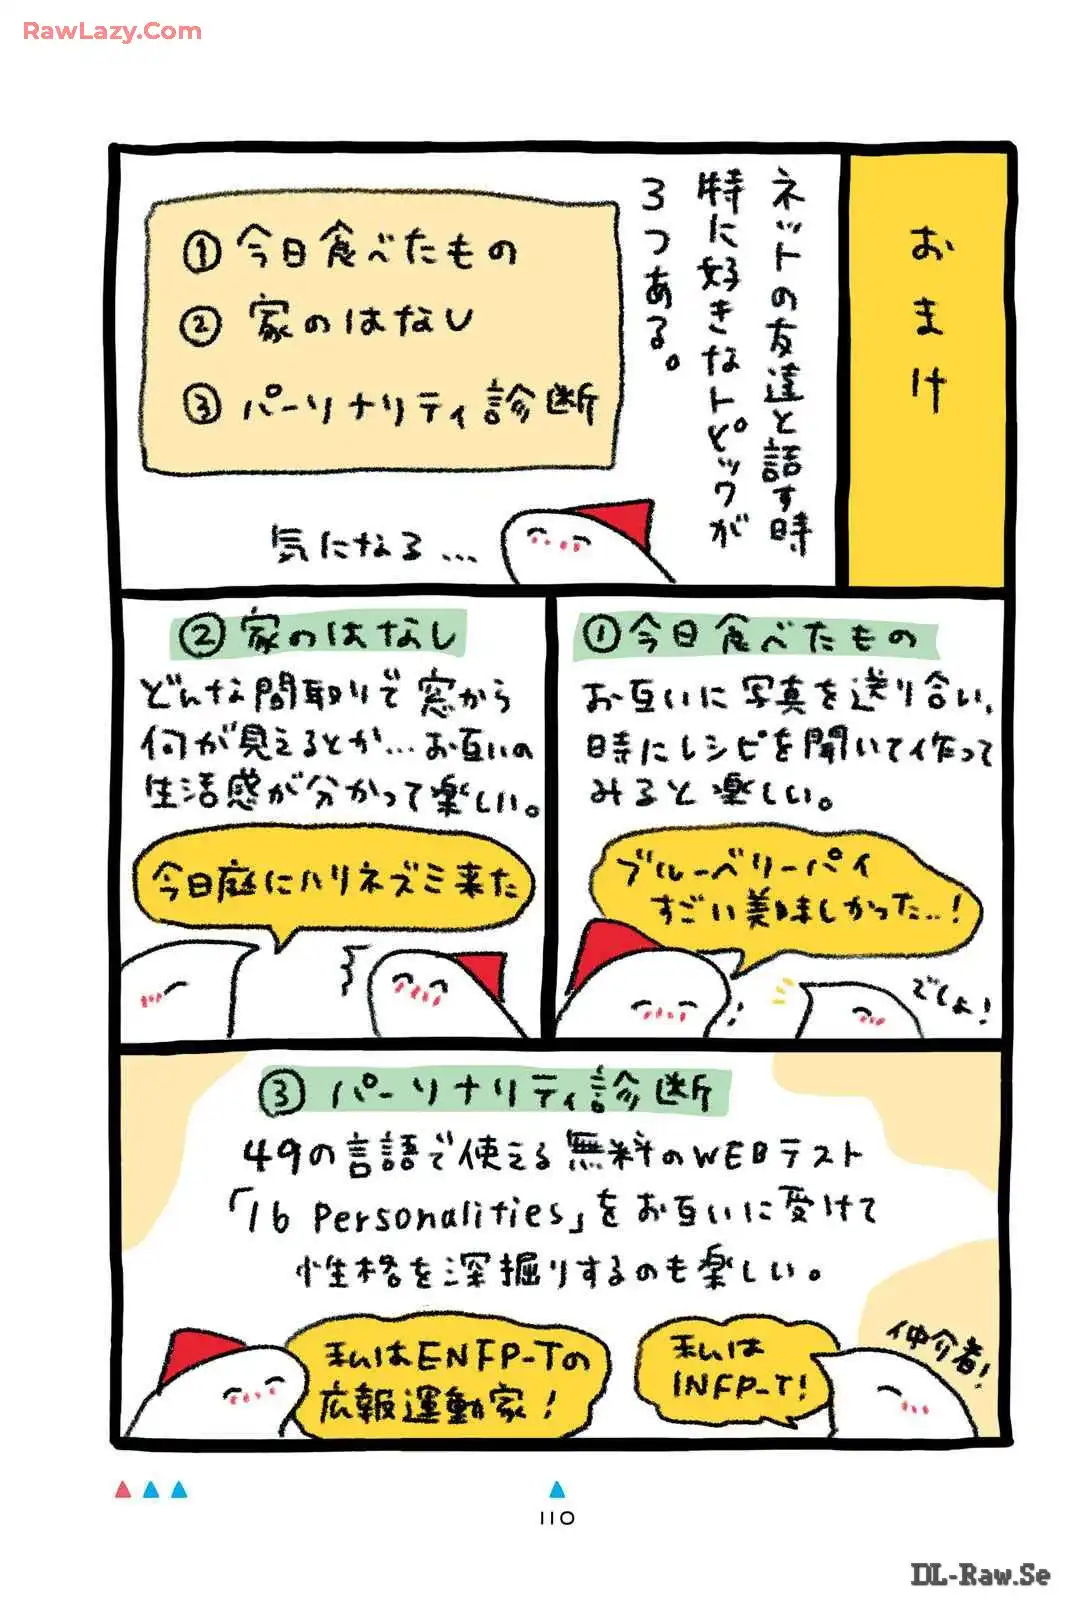 RawLazy.Com
おまけ
ネットの友達と話す時
特に好きなトピックが
3つある。
①今日食べたもの
②家のはなし
③パーソナリティ診断
気になる…
①今日食べたもの
お互いに写真を送り合い、
時にレシピを聞いて作って
みると楽しい。
ブルーベリーパイ
すごい美味しかった…!
でしょ!
②家のはなし
どんな間取りで窓から
何が見えるとか…お互いの
生活感が分かって楽しい。
今日庭にハリネズミ来た
③パーソナリティ診断
49の言語で使える無料のWEBテスト
「16 Personalities」をお互いに受けて
性格を深掘りするのも楽しい。
私はENFP-Tの
広報運動家!
私は
INFP-T!
仲介者!
110
DL-Raw.Se